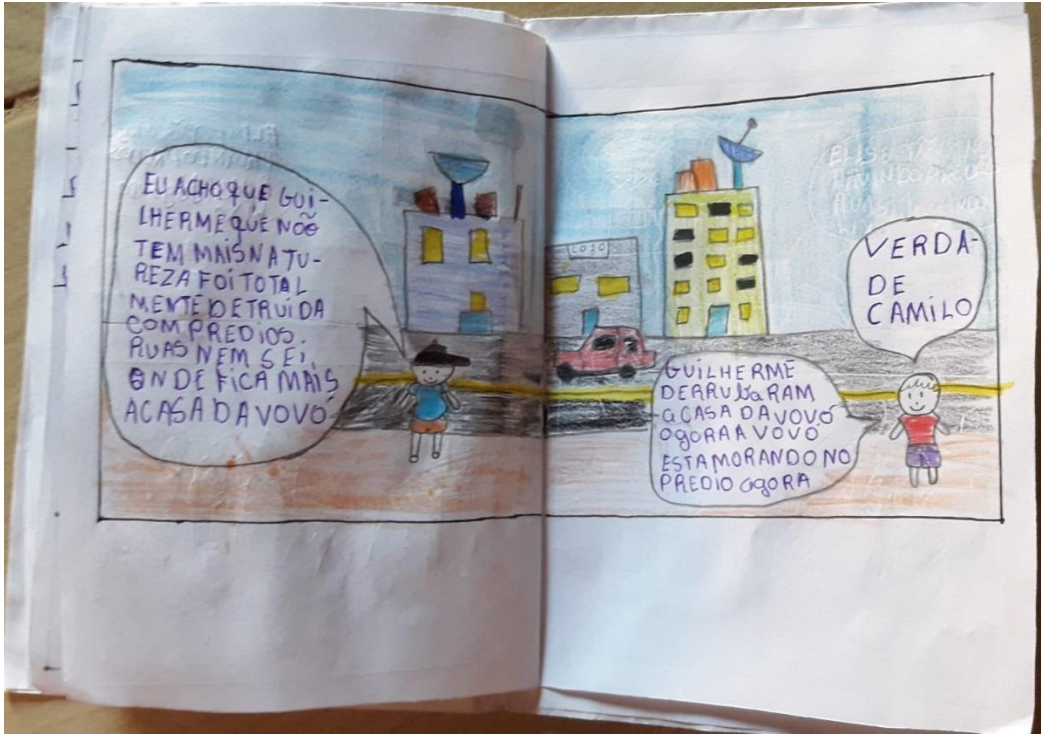 EU ACHO QUE GUI-
LHERME QUE NÃO
TEM MAIS NATU-
REZA FOI TOTAL
MENTE DETRUIDA
COM PREDIOS.
RUAS NEM SEI
ONDE FICA MAIS
A CASA DA VOVÓ
LOJO
VERDA-
DE
CAMILO
GUILHERME
DERRUbaRAM
a CASA DA VOVÓ
agORA A VOVÓ
ESTA MORANDO NO
PREDIO agORA